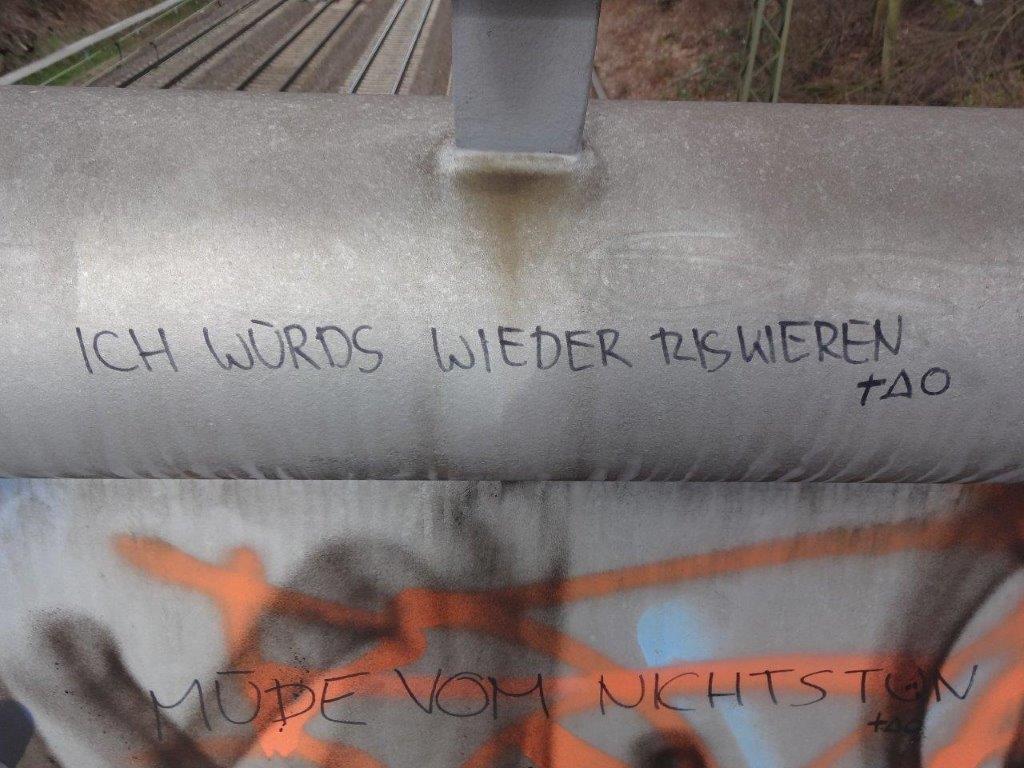 ICH WÜRDS WIEDER RISKIEREN
+ΔO
MÜDE VOM NICHTSTUN
+ΔO